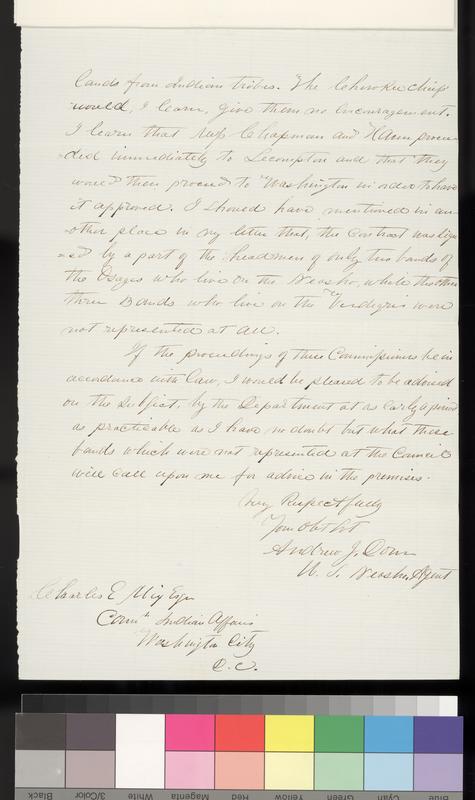 lands from Indian tribes. The Cherokee chief
would, I learn, give them no encouragement.
I learn that Mess Chapman and Ham procee-
ded immediately to Lecompton and that they
would then proceed to Washington in order to have
it approved. I should have mentioned in an-
other place in my letter that, the Contract was sign-
ed by a part of the headmen of only two bands of
the Osages who live on the Neosho, while the other
three Bands who live on the Verdigris were
not represented at all.
If the proceedings of these Commissioners be in
accordance with Law, I would be pleased to be advised
on the subject, by the Department at as early a period
as practicable as I have no doubt but what those
bands which were not represented at the Council
will call upon me for advice in the premises.
Very Respectfully
Your Obt Svt
Andrew J. Dorn
U. S. Neosho Agent
Charles E Mix Esqr
Comr Indian Affairs
Washington City
D. C.
Black
3/Color
White
Magenta
Red
Yellow
Green
Cyan
Blue